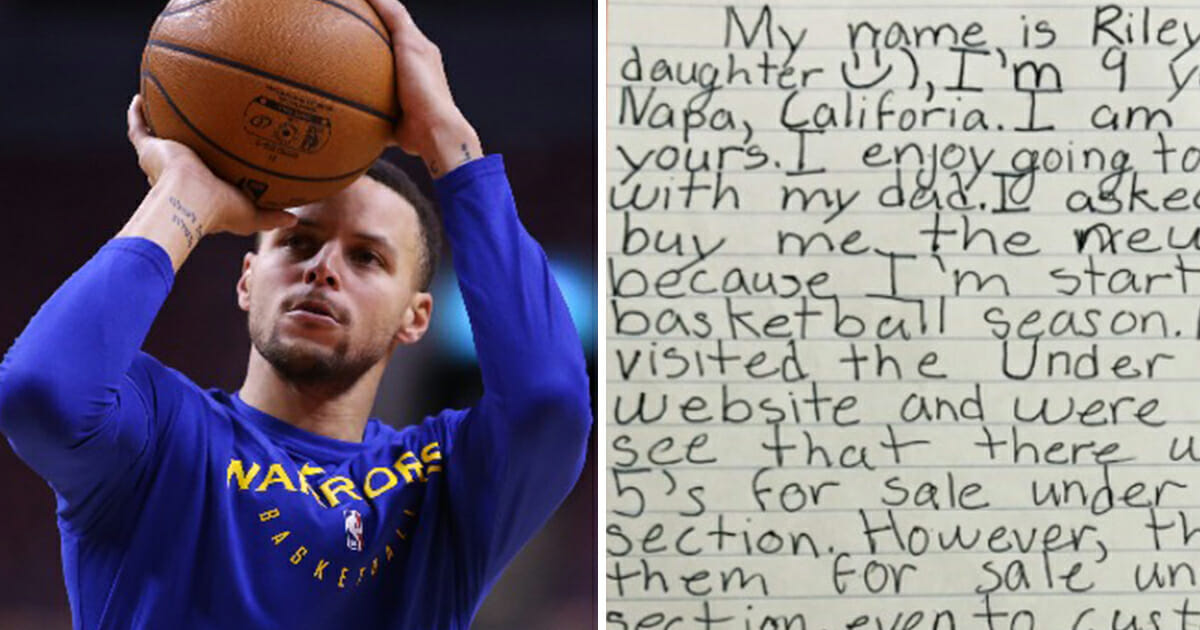 WARRIORS
BASKETBALL
My name is Riley
daughter ☺), I'm 9 y
Napa, Califoria. I am
yours. I enjoy going to
with my dad. I asked
buy me the new
because I'm start
basketball season.
visited the Under
website and were
see that there w
5's for sale under
section. However, th
them for sale un
section, even to cust